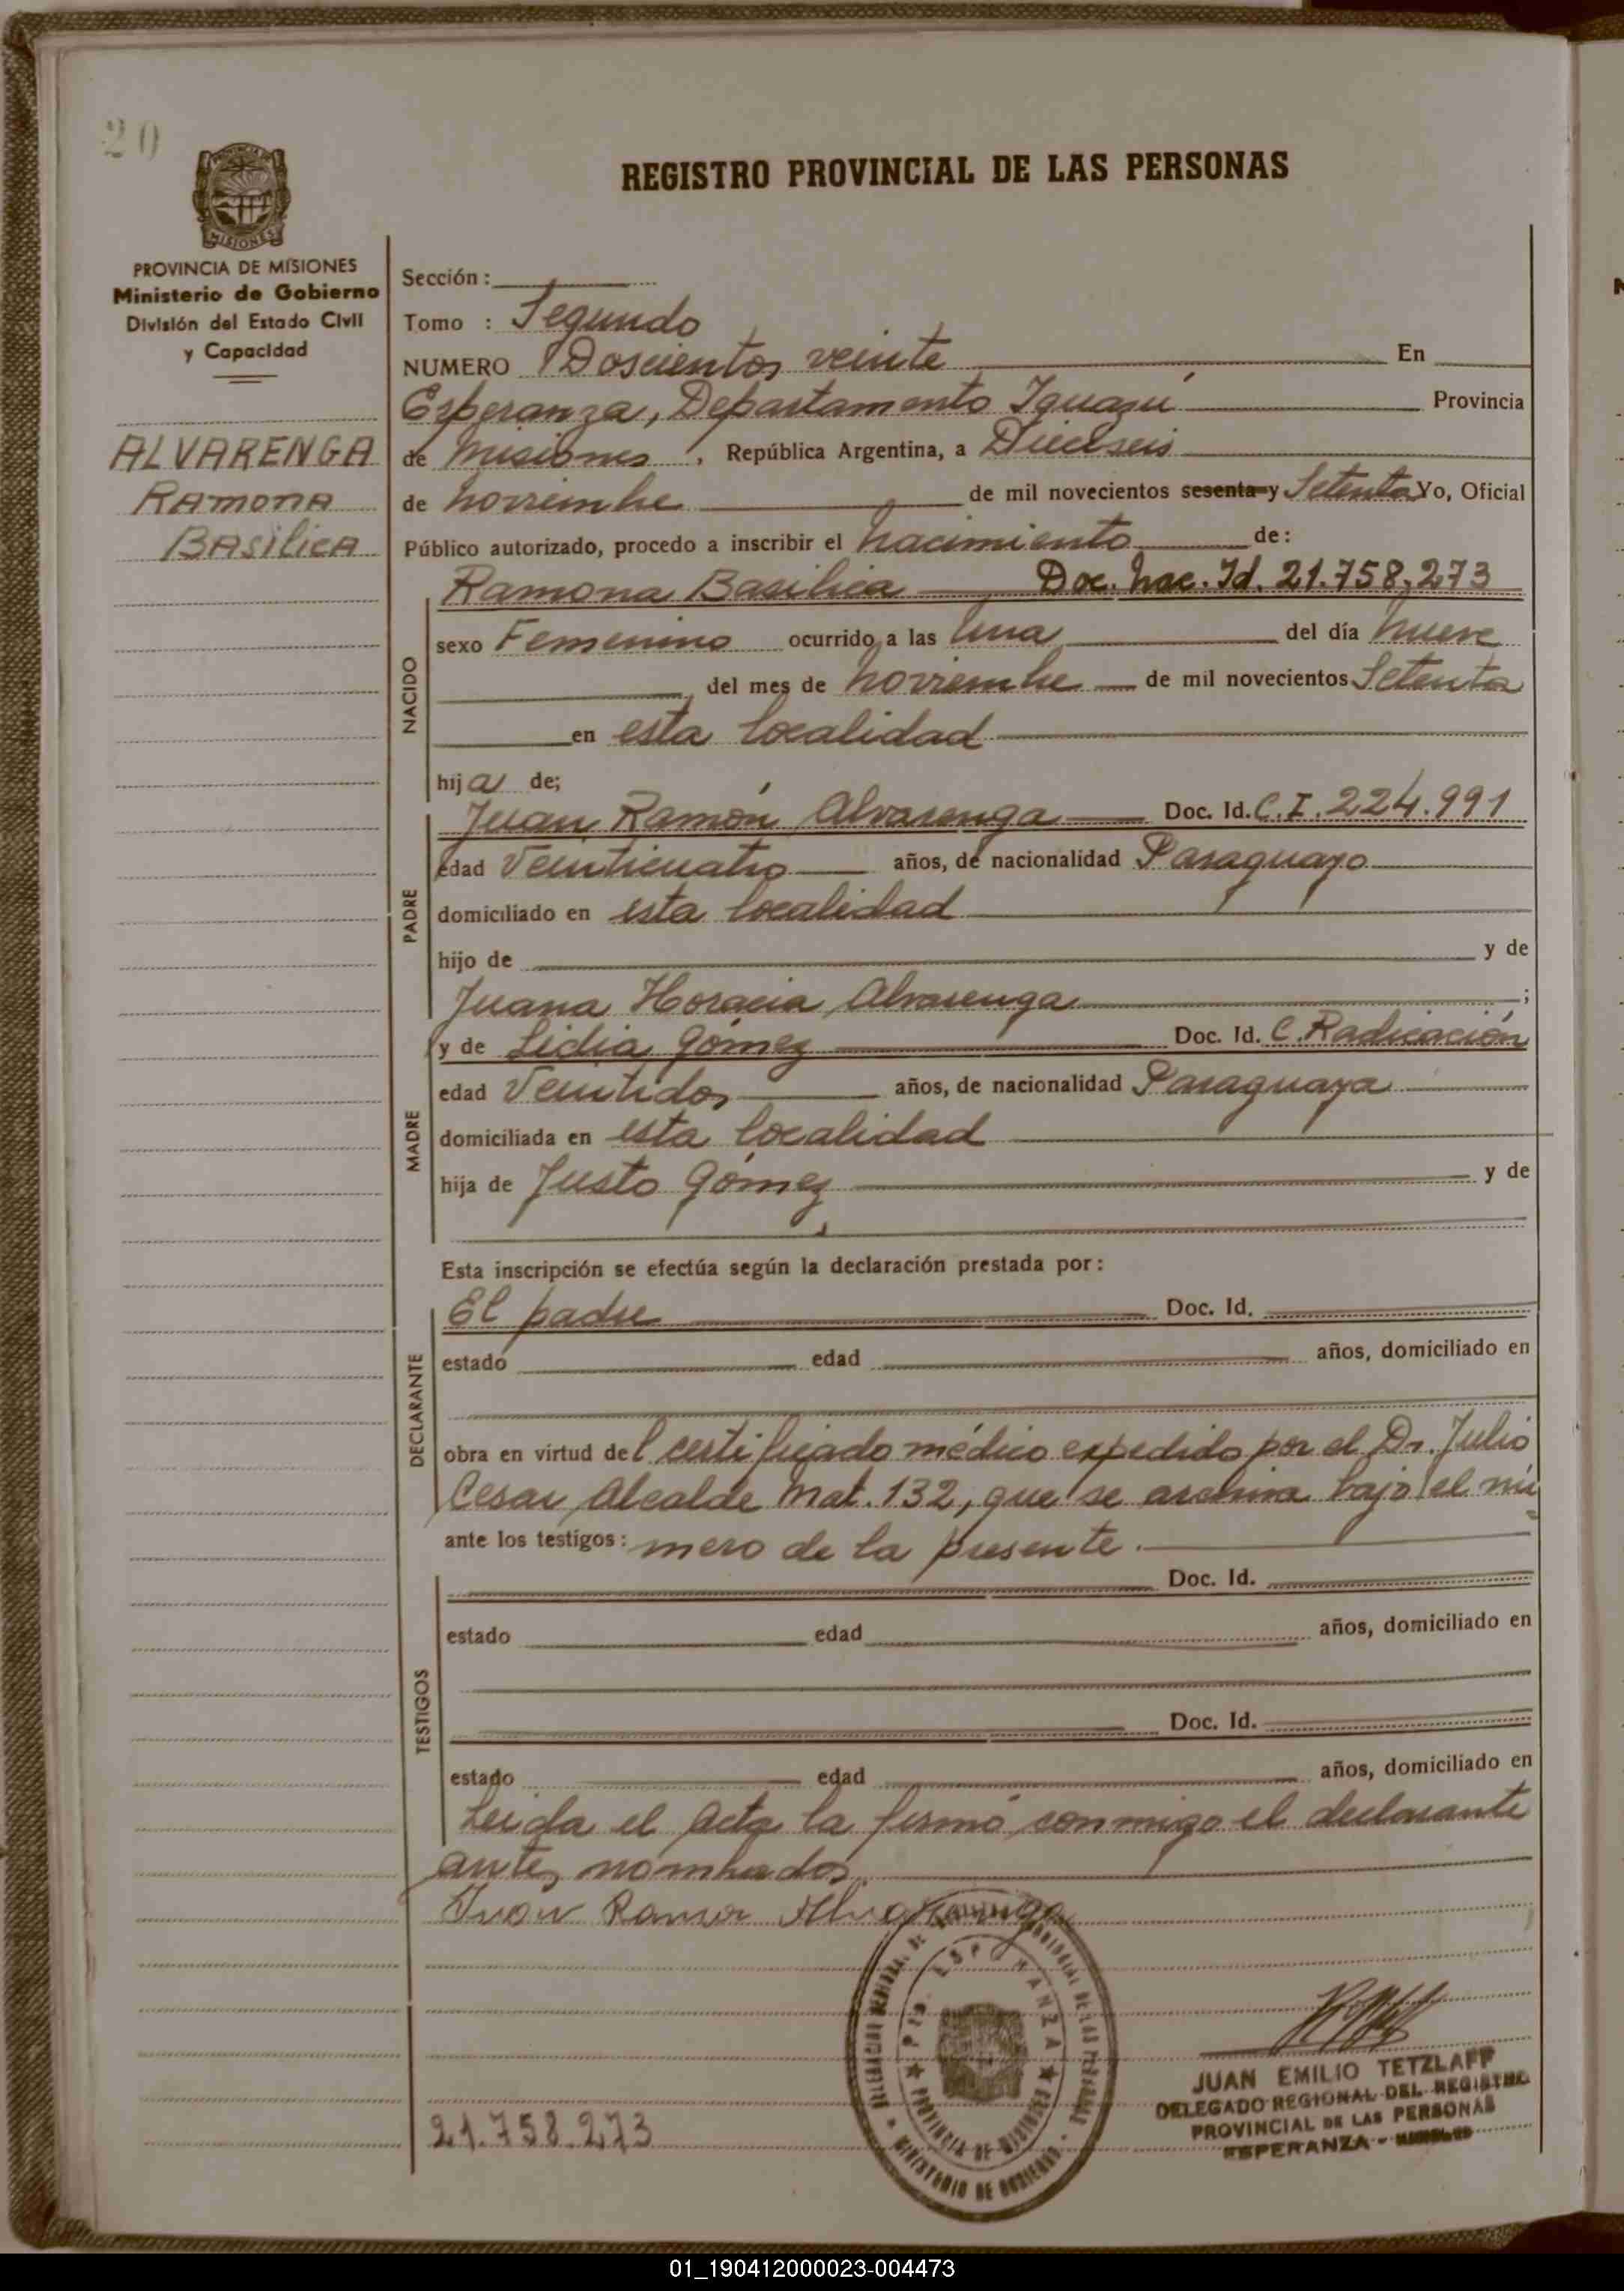 20
REGISTRO PROVINCIAL DE LAS PERSONAS
MISIONES
PROVINCIA DE MISIONES
Ministerio de Gobierno
División del Estado Civil
y Capacidad
ALVARENGA
RAMONA
BASILICA
Sección:
Tomo : Segundo
NUMERO Doscientos veinte En
Esperanza, Departamento Iguazú Provincia
de Misiones, República Argentina, a Dieciseis
de noviembre de mil novecientos sesenta y Setenta Yo, Oficial
Público autorizado, procedo a inscribir el nacimiento de:
Ramona Basilica Doc. Nac. Id. 21.758.273
NACIDO
sexo Femenino ocurrido a las Una del día nueve
del mes de noviembre de mil novecientos Setenta
en esta localidad
hija de;
PADRE
Juan Ramón Alvarenga Doc. Id. C.I. 224.991
edad Veinticuatro años, de nacionalidad Paraguayo
domiciliado en esta localidad
hijo de y de
Juana Horacia Alvarenga ;
MADRE
y de Lidia Gómez Doc. Id. C. Radicación
edad Veintidos años, de nacionalidad Paraguaya
domiciliada en esta localidad
hija de Justo Gómez y de
Esta inscripción se efectúa según la declaración prestada por:
DECLARANTE
El padre Doc. Id.
estado edad años, domiciliado en
obra en virtud del certificado médico expedido por el Dr. Julio
Cesar Alcalde Mat. 132, que se archiva bajo el nú
ante los testigos: mero de la presente.
TESTIGOS
Doc. Id.
estado edad años, domiciliado en
Doc. Id.
estado edad años, domiciliado en
Leida el Acta la firmó conmigo el declarante
antes nombrados
Juan Ramon Alvarenga
ESPERANZA
PROVINCIA DE MISIONES
MINISTERIO DE GOBIERNO
JUAN EMILIO TETZLAFF
DELEGADO REGIONAL DEL REGISTRO
PROVINCIAL DE LAS PERSONAS
ESPERANZA - MISIONES
21.758.273
01_190412000023-004473